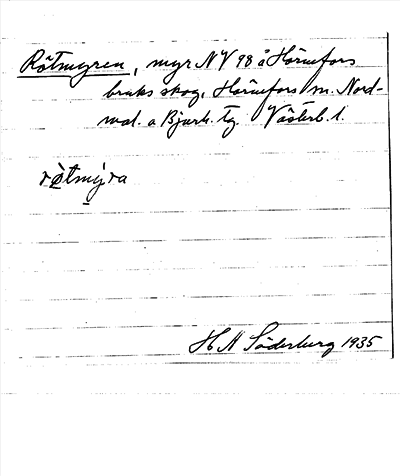 Rötmyren, myr NV 98 å Hörnefors
bruks skog, Hörnefors m. Nord-
mal. o Bjurh. tg. Västerb. l.
rö̀tmýra
H A Söderberg 1935